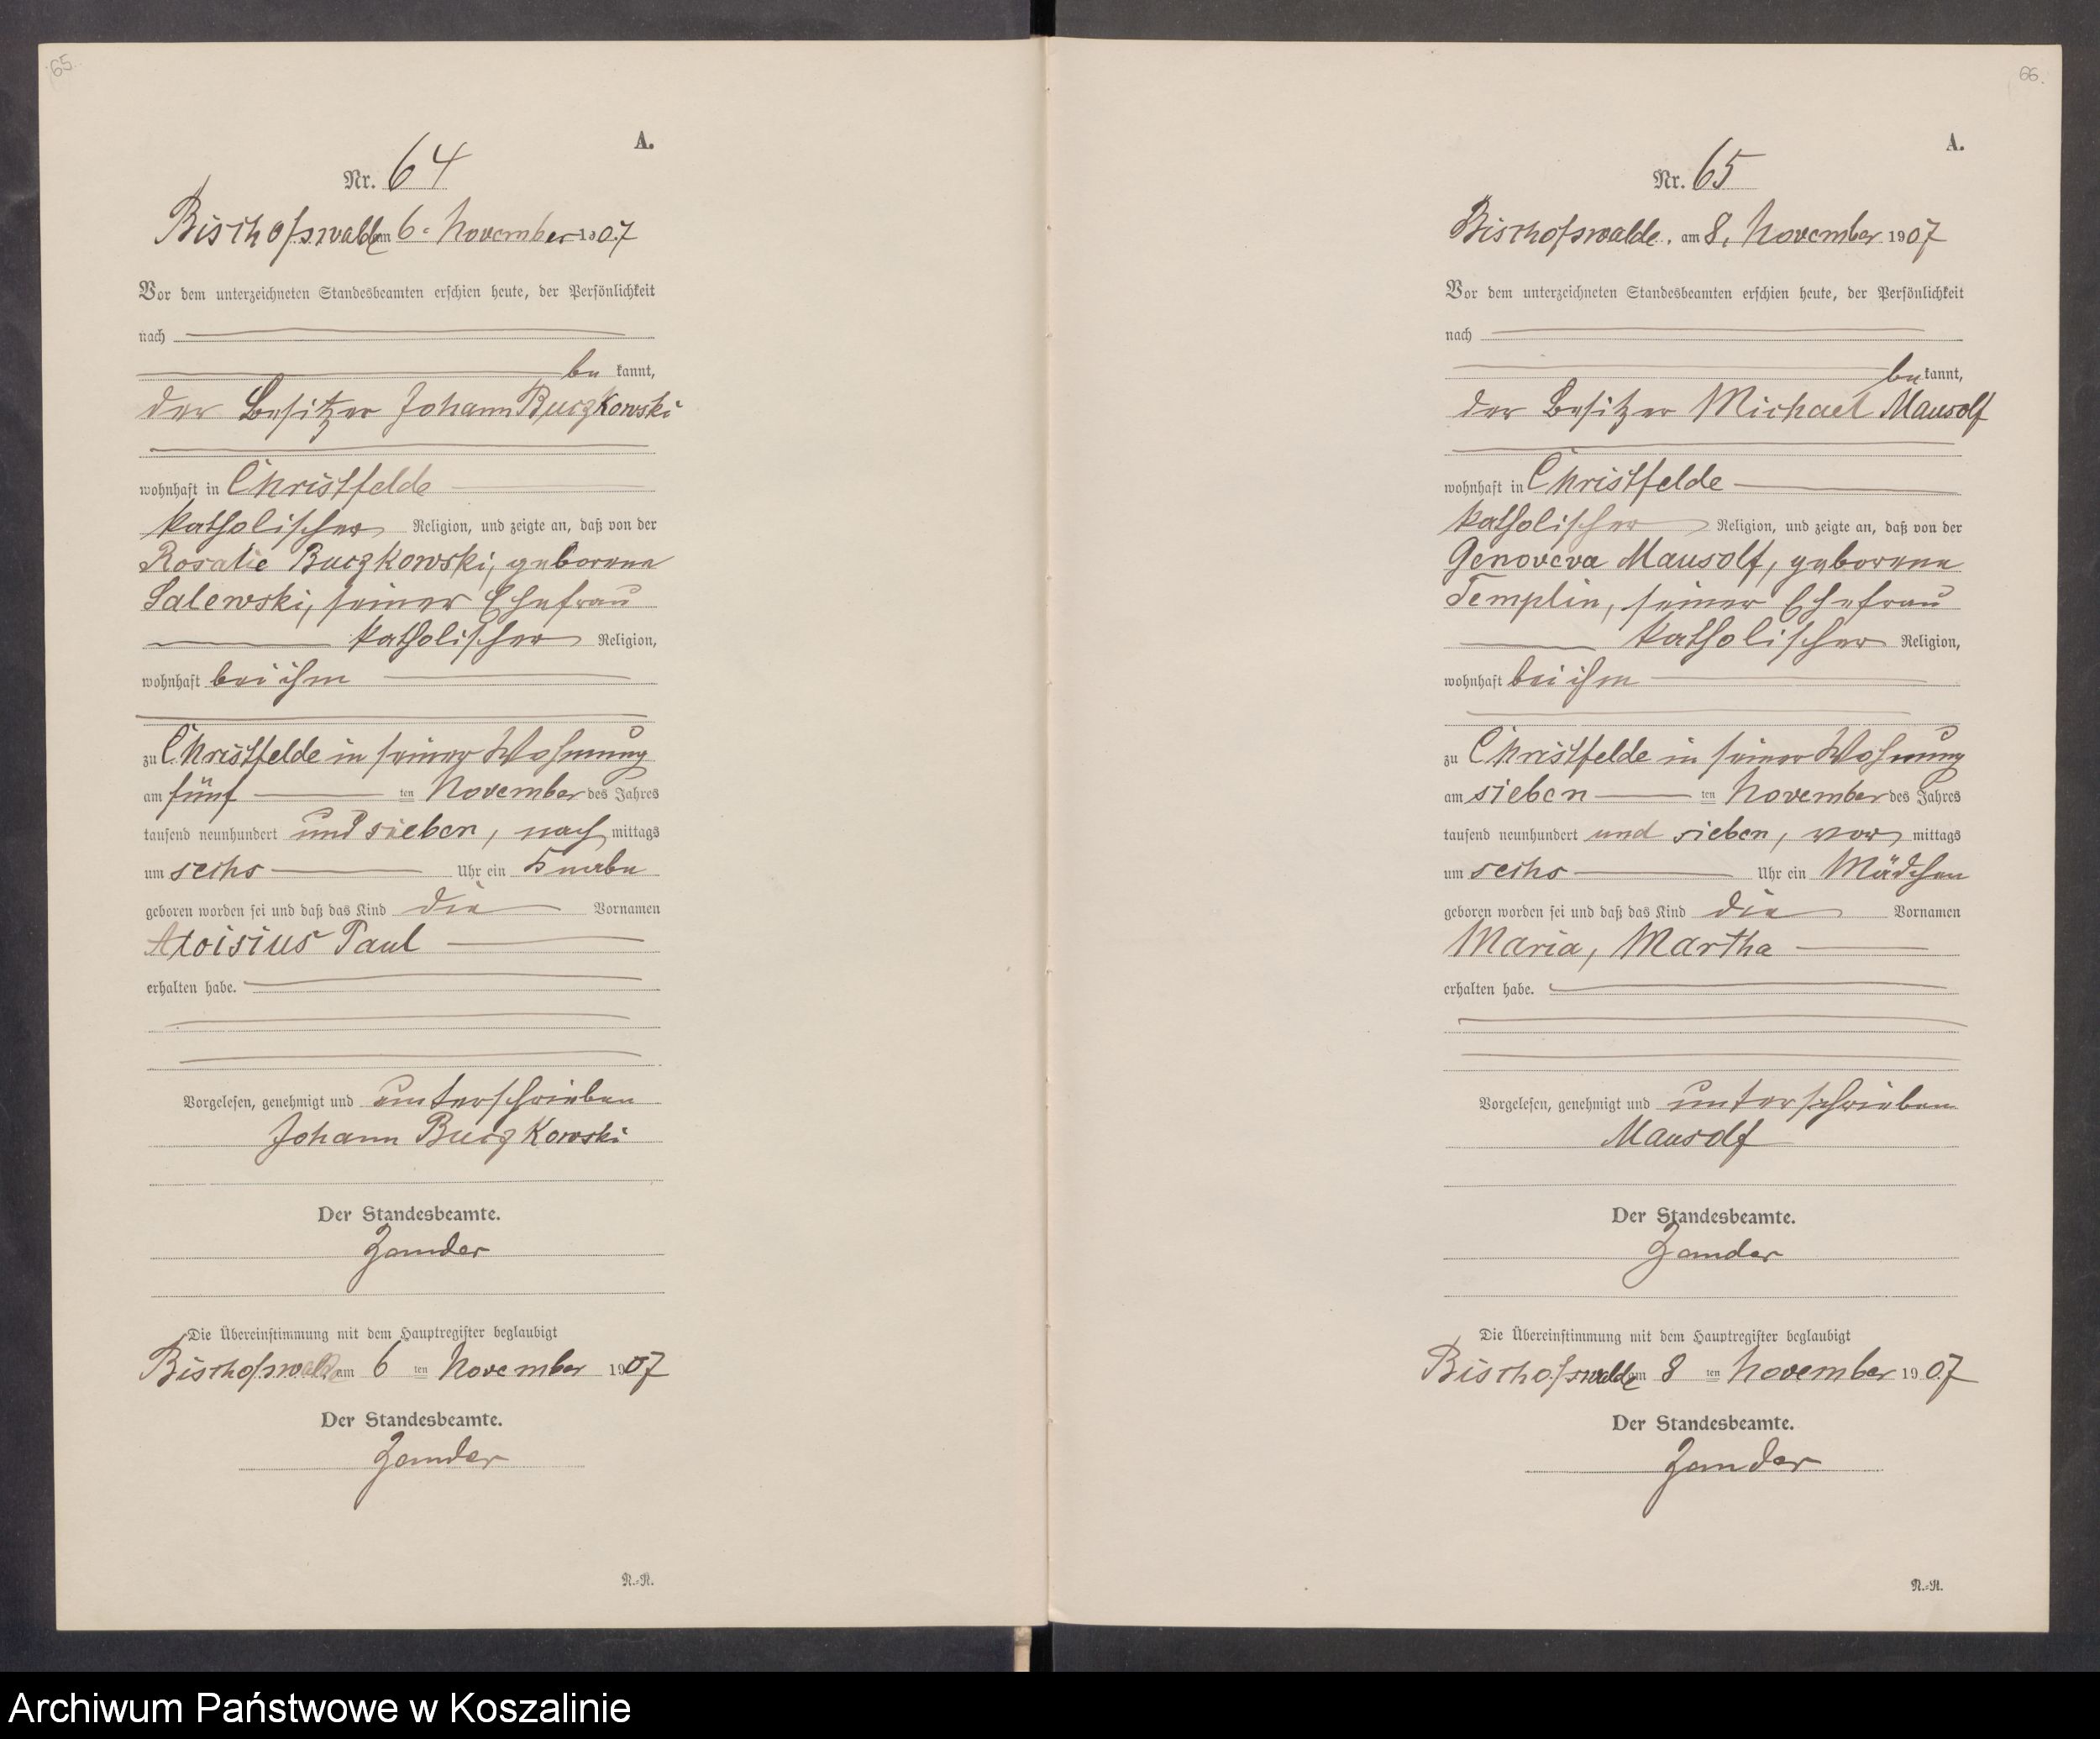 65.
A.
Nr. 64
Bischofswalde am 6. November 1907
Vor dem unterzeichneten Standesbeamten erschien heute, der Persönlichkeit
nach
be kannt,
der Besitzer Johann Buczkowski
wohnhaft in Christfelde
katholischer Religion, und zeigte an, daß von der
Rosalie Buczkowski, geborene
Salewski, seiner Ehefrau
katholischer Religion,
wohnhaft bei ihm
zu Christfelde in seiner Wohnung
am fünf ten November des Jahres
tausend neunhundert und sieben, nach mittags
um sechs Uhr ein Knabe
geboren worden sei und daß das Kind die Vornamen
Aloisius Paul
erhalten habe.
Vorgelesen, genehmigt und unterschrieben
Johann Buczkowski
Der Standesbeamte.
Zander
Die Übereinstimmung mit dem Hauptregister beglaubigt
Bischofswalde am 6 ten November 1907
Der Standesbeamte.
Zander
N.=R.
66.
A.
Nr. 65
Bischofswalde, am 8. November 1907
Vor dem unterzeichneten Standesbeamten erschien heute, der Persönlichkeit
nach
be kannt,
der Besitzer Michael Mausolf
wohnhaft in Christfelde
katholischer Religion, und zeigte an, daß von der
Genoveva Mausolf, geborene
Templin, seiner Ehefrau
katholischer Religion,
wohnhaft bei ihm
zu Christfelde in seiner Wohnung
am sieben ten November des Jahres
tausend neunhundert und sieben, vor mittags
um sechs Uhr ein Mädchen
geboren worden sei und daß das Kind die Vornamen
Maria, Martha
erhalten habe.
Vorgelesen, genehmigt und unterschrieben
Mausolf
Der Standesbeamte.
Zander
Die Übereinstimmung mit dem Hauptregister beglaubigt
Bischofswalde am 8 ten November 1907
Der Standesbeamte.
Zander
N.=R.
Archiwum Państwowe w Koszalinie